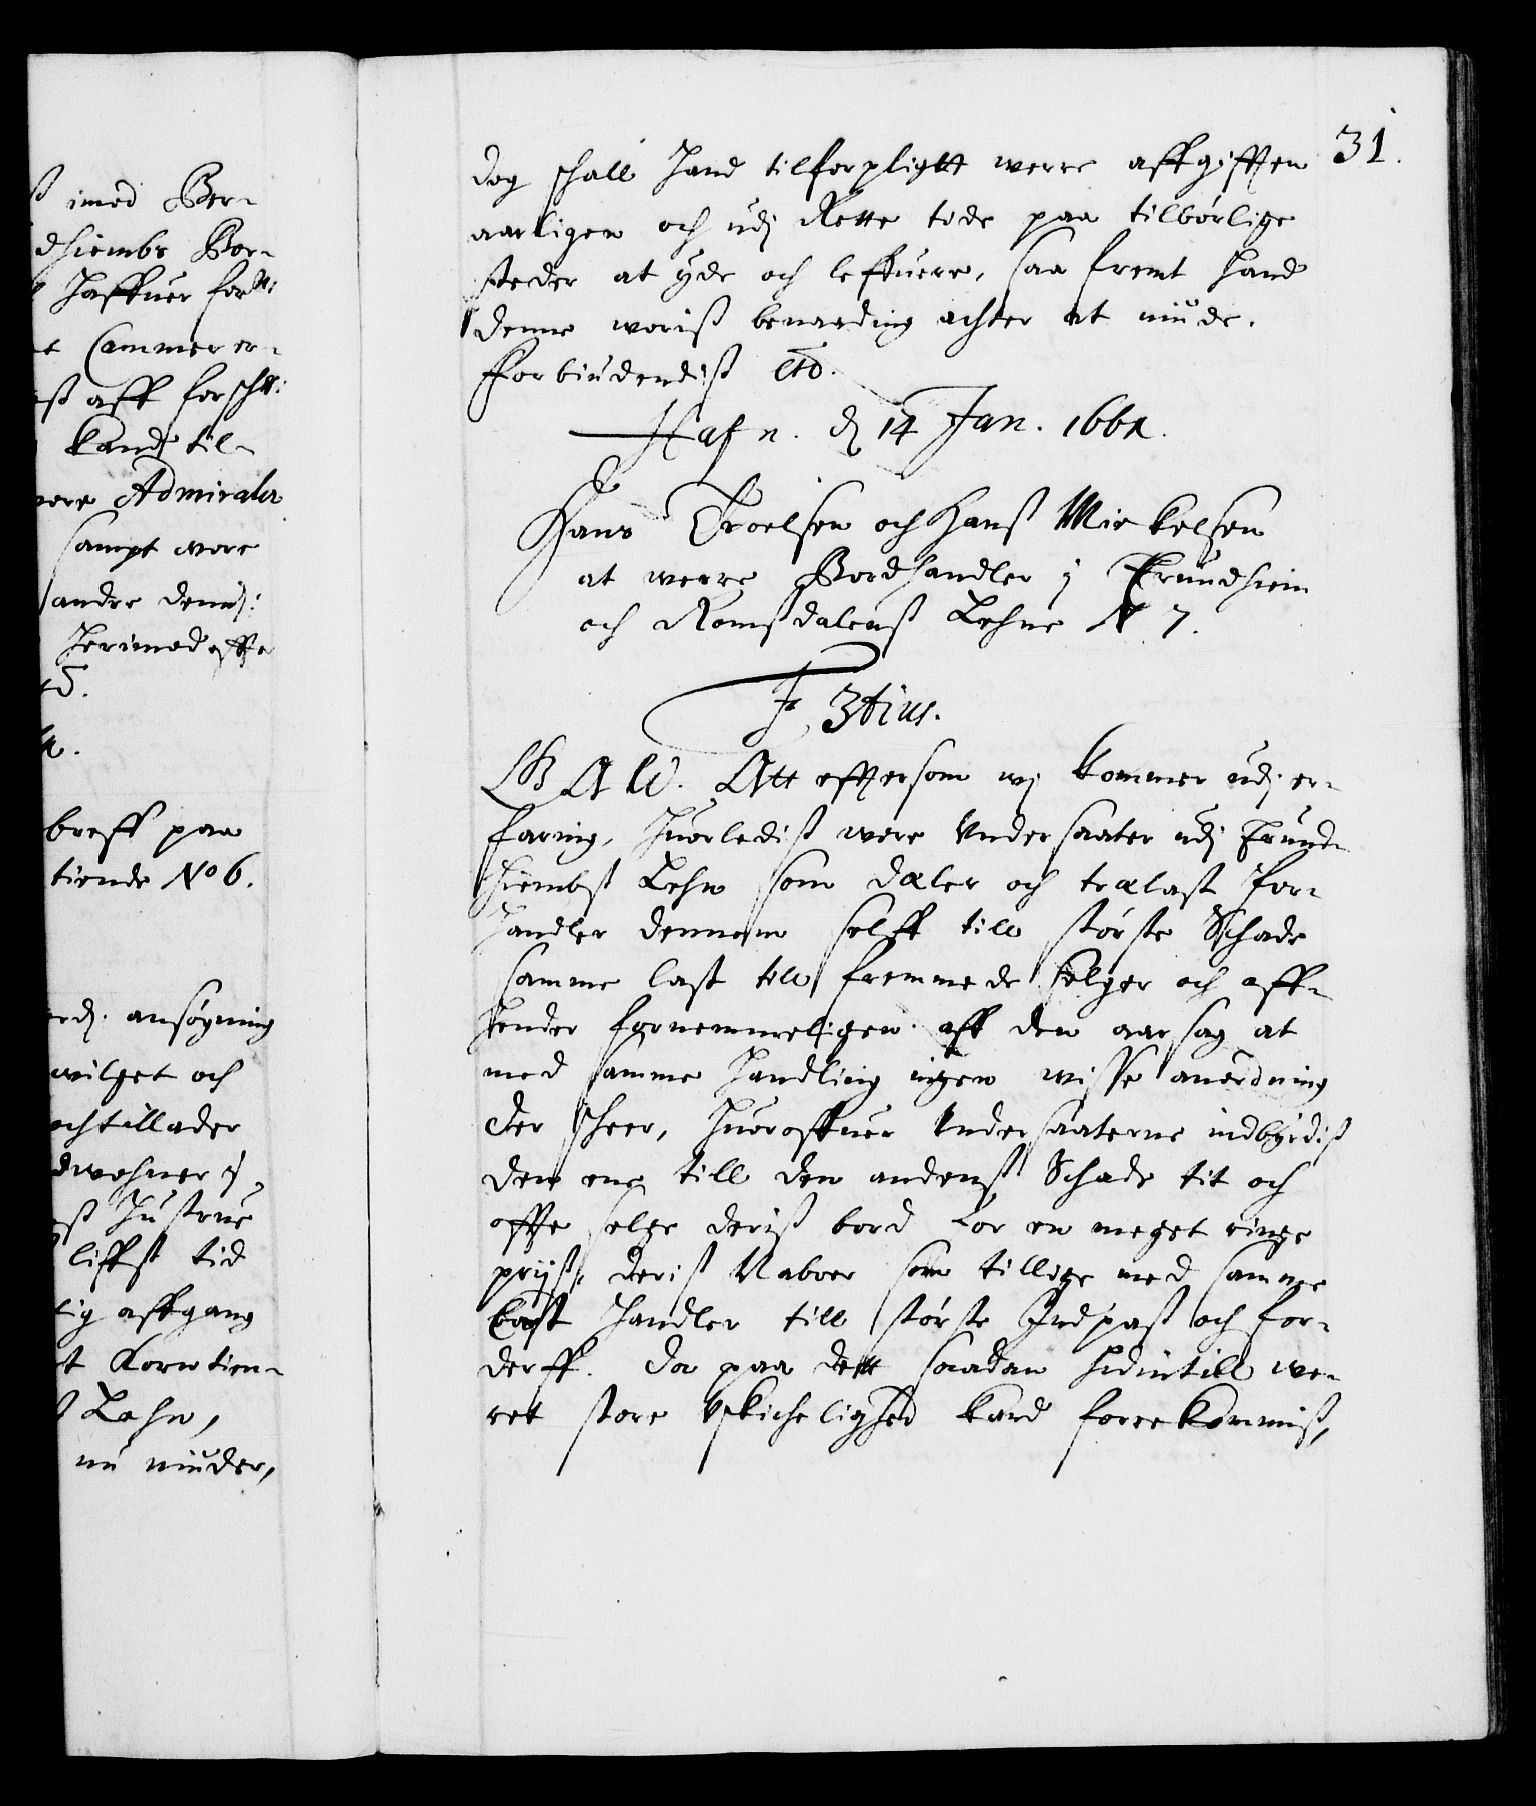 ß imod Bor-
dhiembs Bor-
haffuer forn:
et Cammer er-
ß aff forschr:
kand til-
vore Admiraler
sampt wore
andre dennd:
herimod effter
etc.
breff paa
tiende No 6.
erd. ansøgning
wilget och
och tillader
dwohner i,
ß Hustrue
liffs tid
lig affgang
t Korntien-
Lehn,
nu niuder,
31.
dog schall hand tilforpligtt werre affgifften
aarligen och udj Rette tide paa tilbørlige
steder at yde och leffuere, saa fremt hand
denne woriß benaading achter at niude.
Forbiudendiß etc.
Hafn. d 14 Jan. 1661.
Hans Troelsen och Hanß Mickelsen
at werre Bordhandler i Trundhiem
och Romßdalens Lehne N 7.
F 3tius.
G A W. Att efftersom wj kommer udj er-
faring, huorlediß wore Undersaatter udj Trund-
hiembs Lehn som dæler och trælast for-
handler dennem selff till største Schade
samme last till fremmede selger och aff-
hender fornemmeligen aff den aarsag at
med samme handling ingen wisse anordning
der scheer, huoroffuer Undersaatterne indbyrdiß
den ene till den andens Schade tit och
offte selge deriß bord for en meget ringe
prijs, deriß Naboer som tillige med samme
last handler till største Indpaß och for-
derff. da paa dett saadan hidintill we-
ret store Uskichelighed kand forrekommiß,